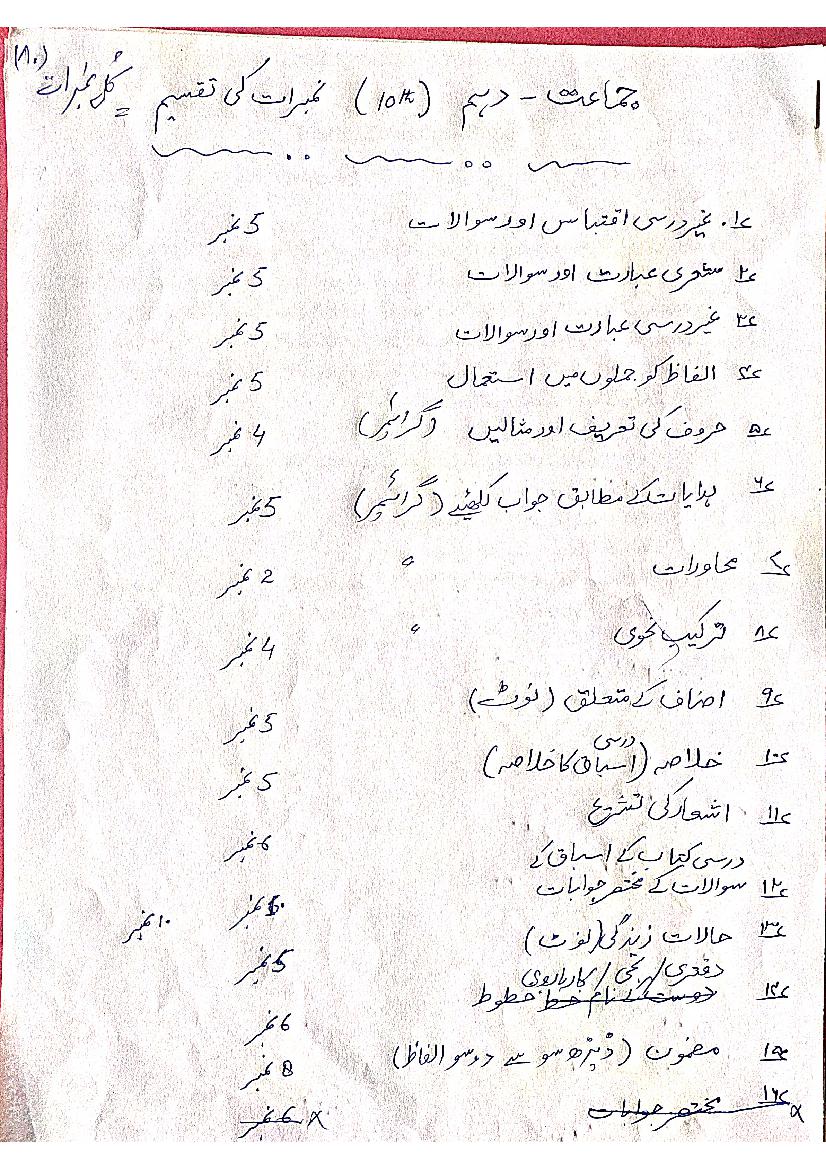 جماعت - دہم (10th) نمبرات کی تقسیم = کُل نمبرات (۸۰)
ع۱. غیر درسی اقتباس اور سوالات 5 نمبر
ع۲ شعری عبارت اور سوالات 5 نمبر
ع۳ غیر درسی عبارت اور سوالات 5 نمبر
ع۴ الفاظ کو جملوں میں استعمال 5 نمبر
ع۵ حروف کی تعریف اور مثالیں (گرائمر) 4 نمبر
ع۶ ہدایات کے مطابق جواب لکھئیے (گرائمر) 5 نمبر
ع۷ محاورات " 2 نمبر
ع۸ ترکیب نحوی " 4 نمبر
ع۹ اصناف کے متعلق (نوٹ) 5 نمبر
ع۱۰ خلاصہ (درسی اسباق کا خلاصہ) 5 نمبر
ع۱۱ اشعار کی تشریح 6 نمبر
درسی کتاب کے اسباق کے
ع۱۲ سوالات کے مختصر جوابات نمبر ۱۰ نمبر
ع۱۳ حالات زندگی (نوٹ) 5 نمبر
دفتری / نجی / کاروباری
ع۱۴ دوست کے نام خط خطوط 6 نمبر
ع۱۵ مضمون (ڈیڑھ سو سے دو سو الفاظ) 8 نمبر
ع۱۶ مختصر جوابات x 6 نمبر x